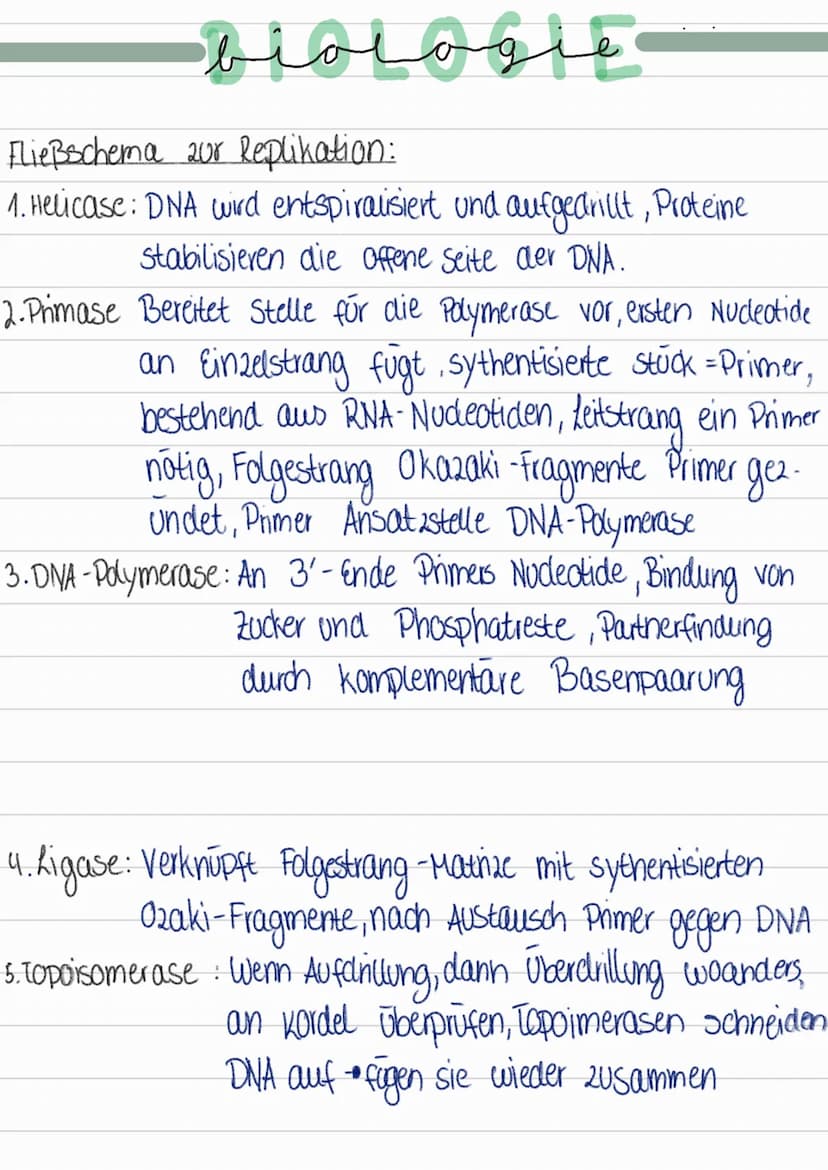 BIOLOGIE
biologie
Fließschema zur Replikation:
1. Helicase: DNA wird entspiralisiert und aufgedrillt, Proteine
stabilisieren die offene Seite der DNA.
2. Primase Bereitet Stelle für die Polymerase vor, ersten Nucleotide
an Einzelstrang fügt, sythentisierte stück = Primer,
bestehend aus RNA-Nucleotiden, Leitstrang ein Primer
nötig, Folgestrang Okazaki-Fragmente Primer gez-
ündet, Primer Ansatzstelle DNA-Polymerase
3. DNA-Polymerase: An 3'-Ende Primers Nucleotide, Bindung von
Zucker und Phosphatreste, Partnerfindung
durch komplementäre Basenpaarung
4. Ligase: Verknüpft Folgestrang-Matrize mit sythentisierten
Ozaki-Fragmente, nach Austausch Primer gegen DNA
5. Topoisomerase: Wenn Aufdrillung, dann Überdrillung woanders,
an Kordel überprüfen, Topoimerasen schneiden
DNA auf → fügen sie wieder zusammen